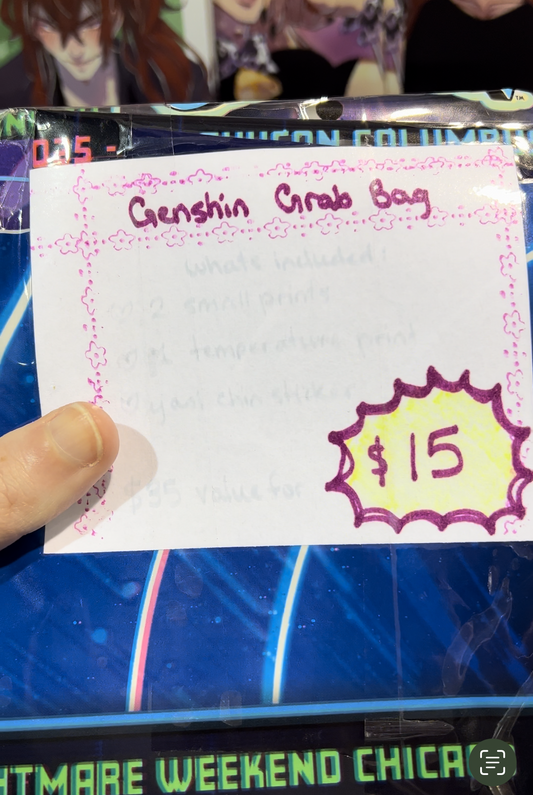 015 -
COLUMBU
Genshin Grab Bag
whats included:
2 small prints
temperature print
chin sticker
$35 value for
$15
HTMARE WEEKEND CHICA